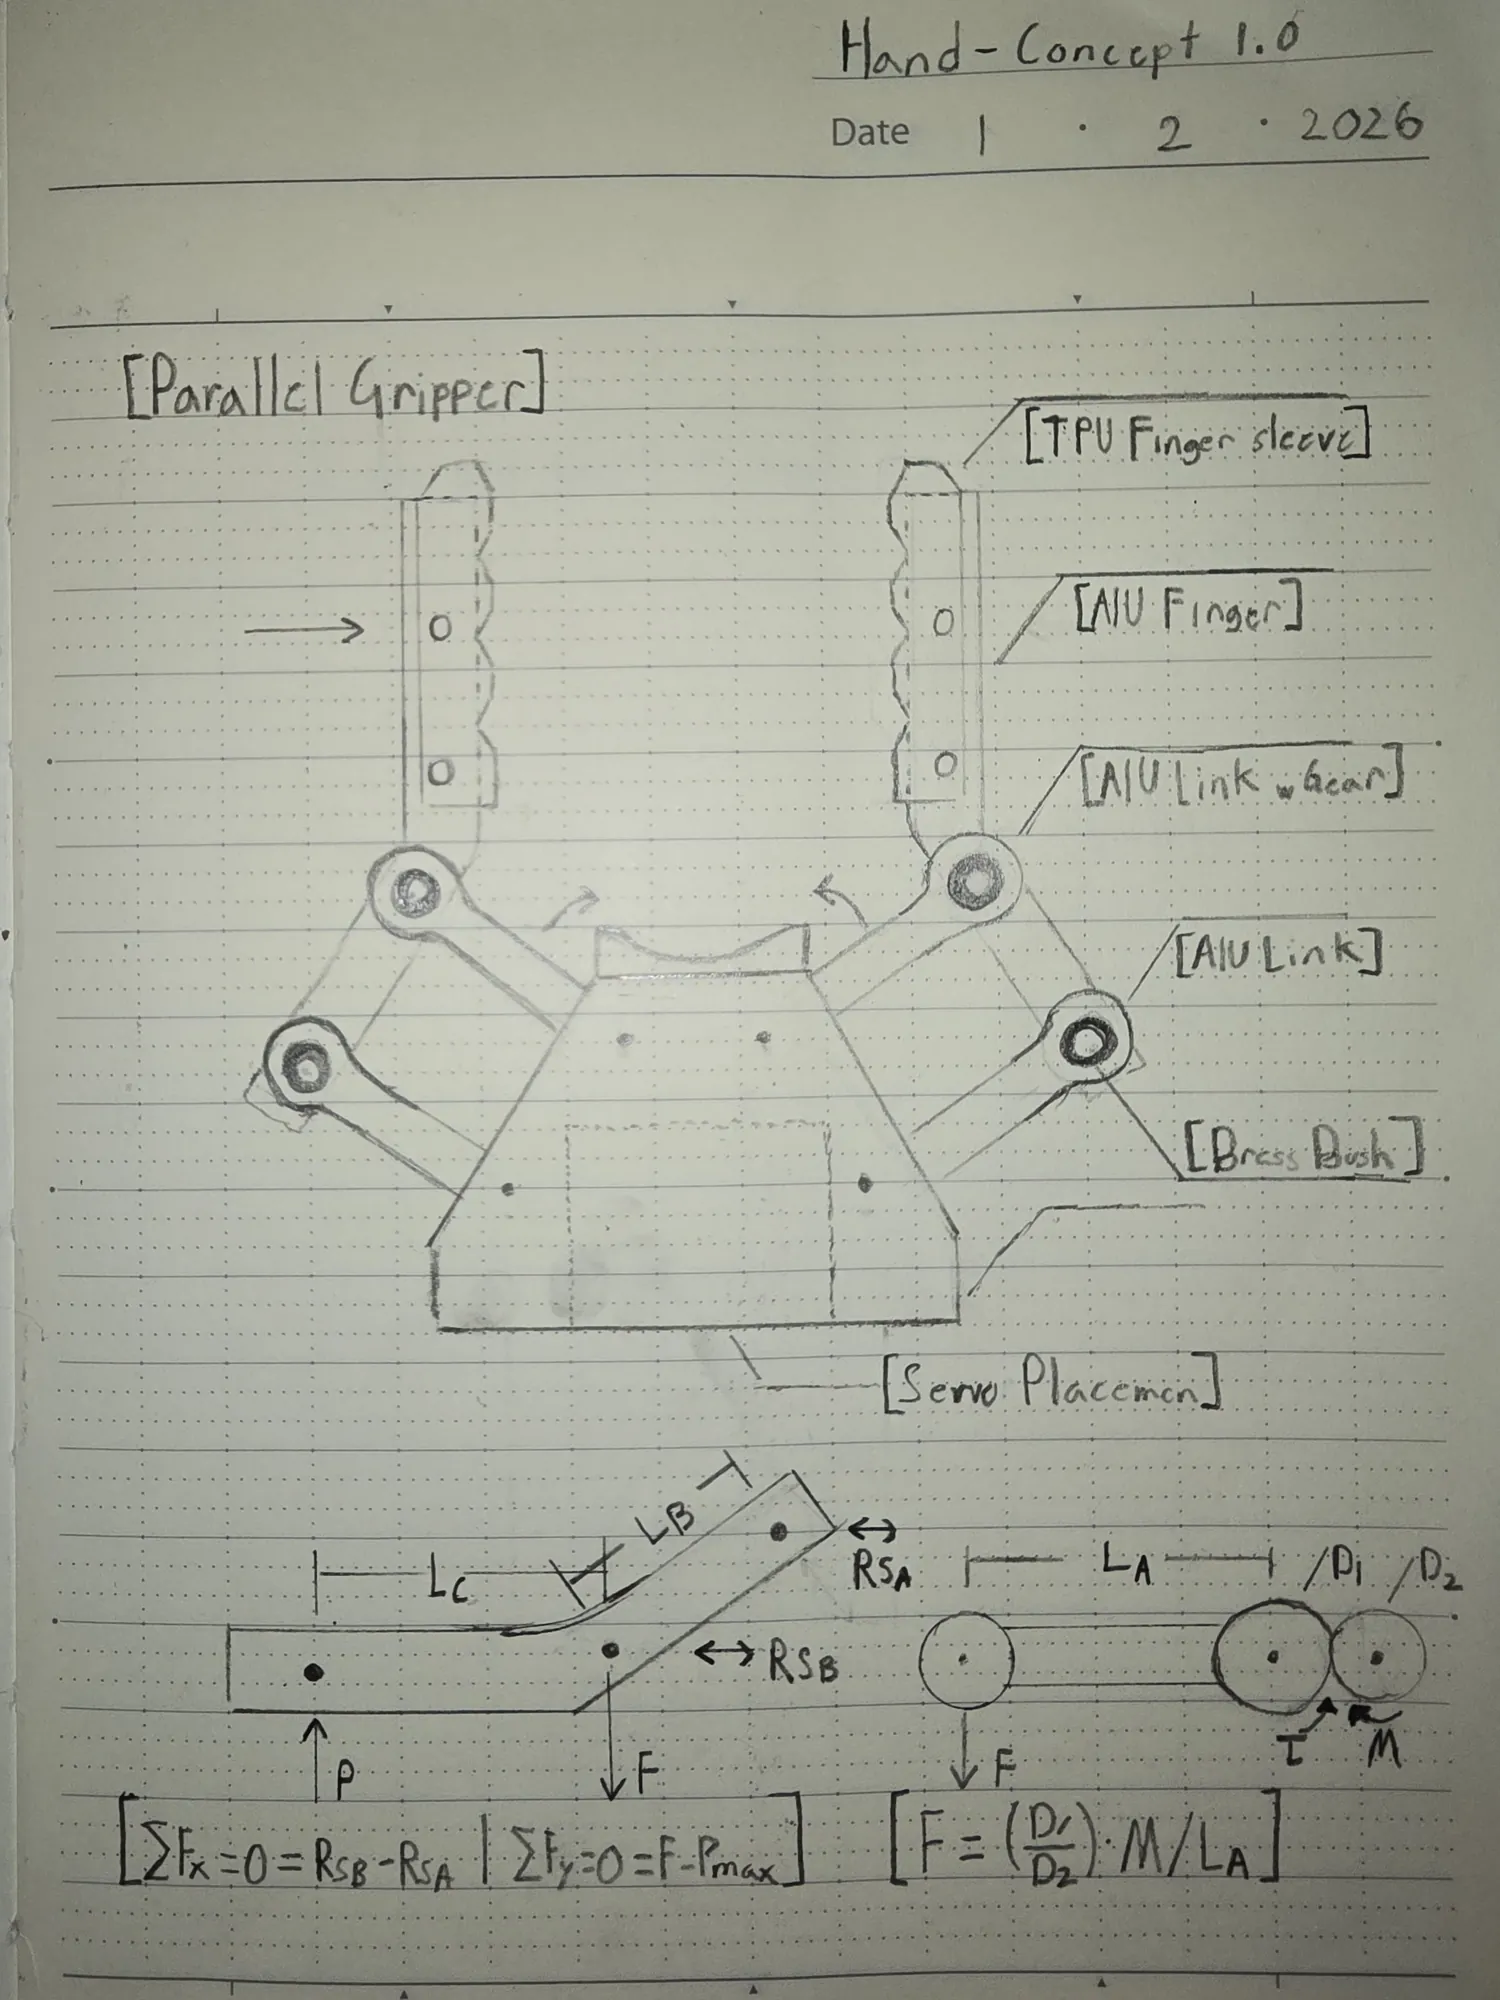 Hand-Concept 1.0
Date 1 . 2 . 2026
[Parallel Gripper]
[TPU Finger sleeve]
[AlU Finger]
[AlU Link w Gear]
[AlU Link]
[Brass Bush]
[Servo Placemen]
LB
LC
RSA
LA
/D1 /D2
RSB
P
F
F
τ
M
[ΣFx=0=RSB-RSA | ΣFy=0=F-Pmax]
[F=(D1/D2)·M/LA]